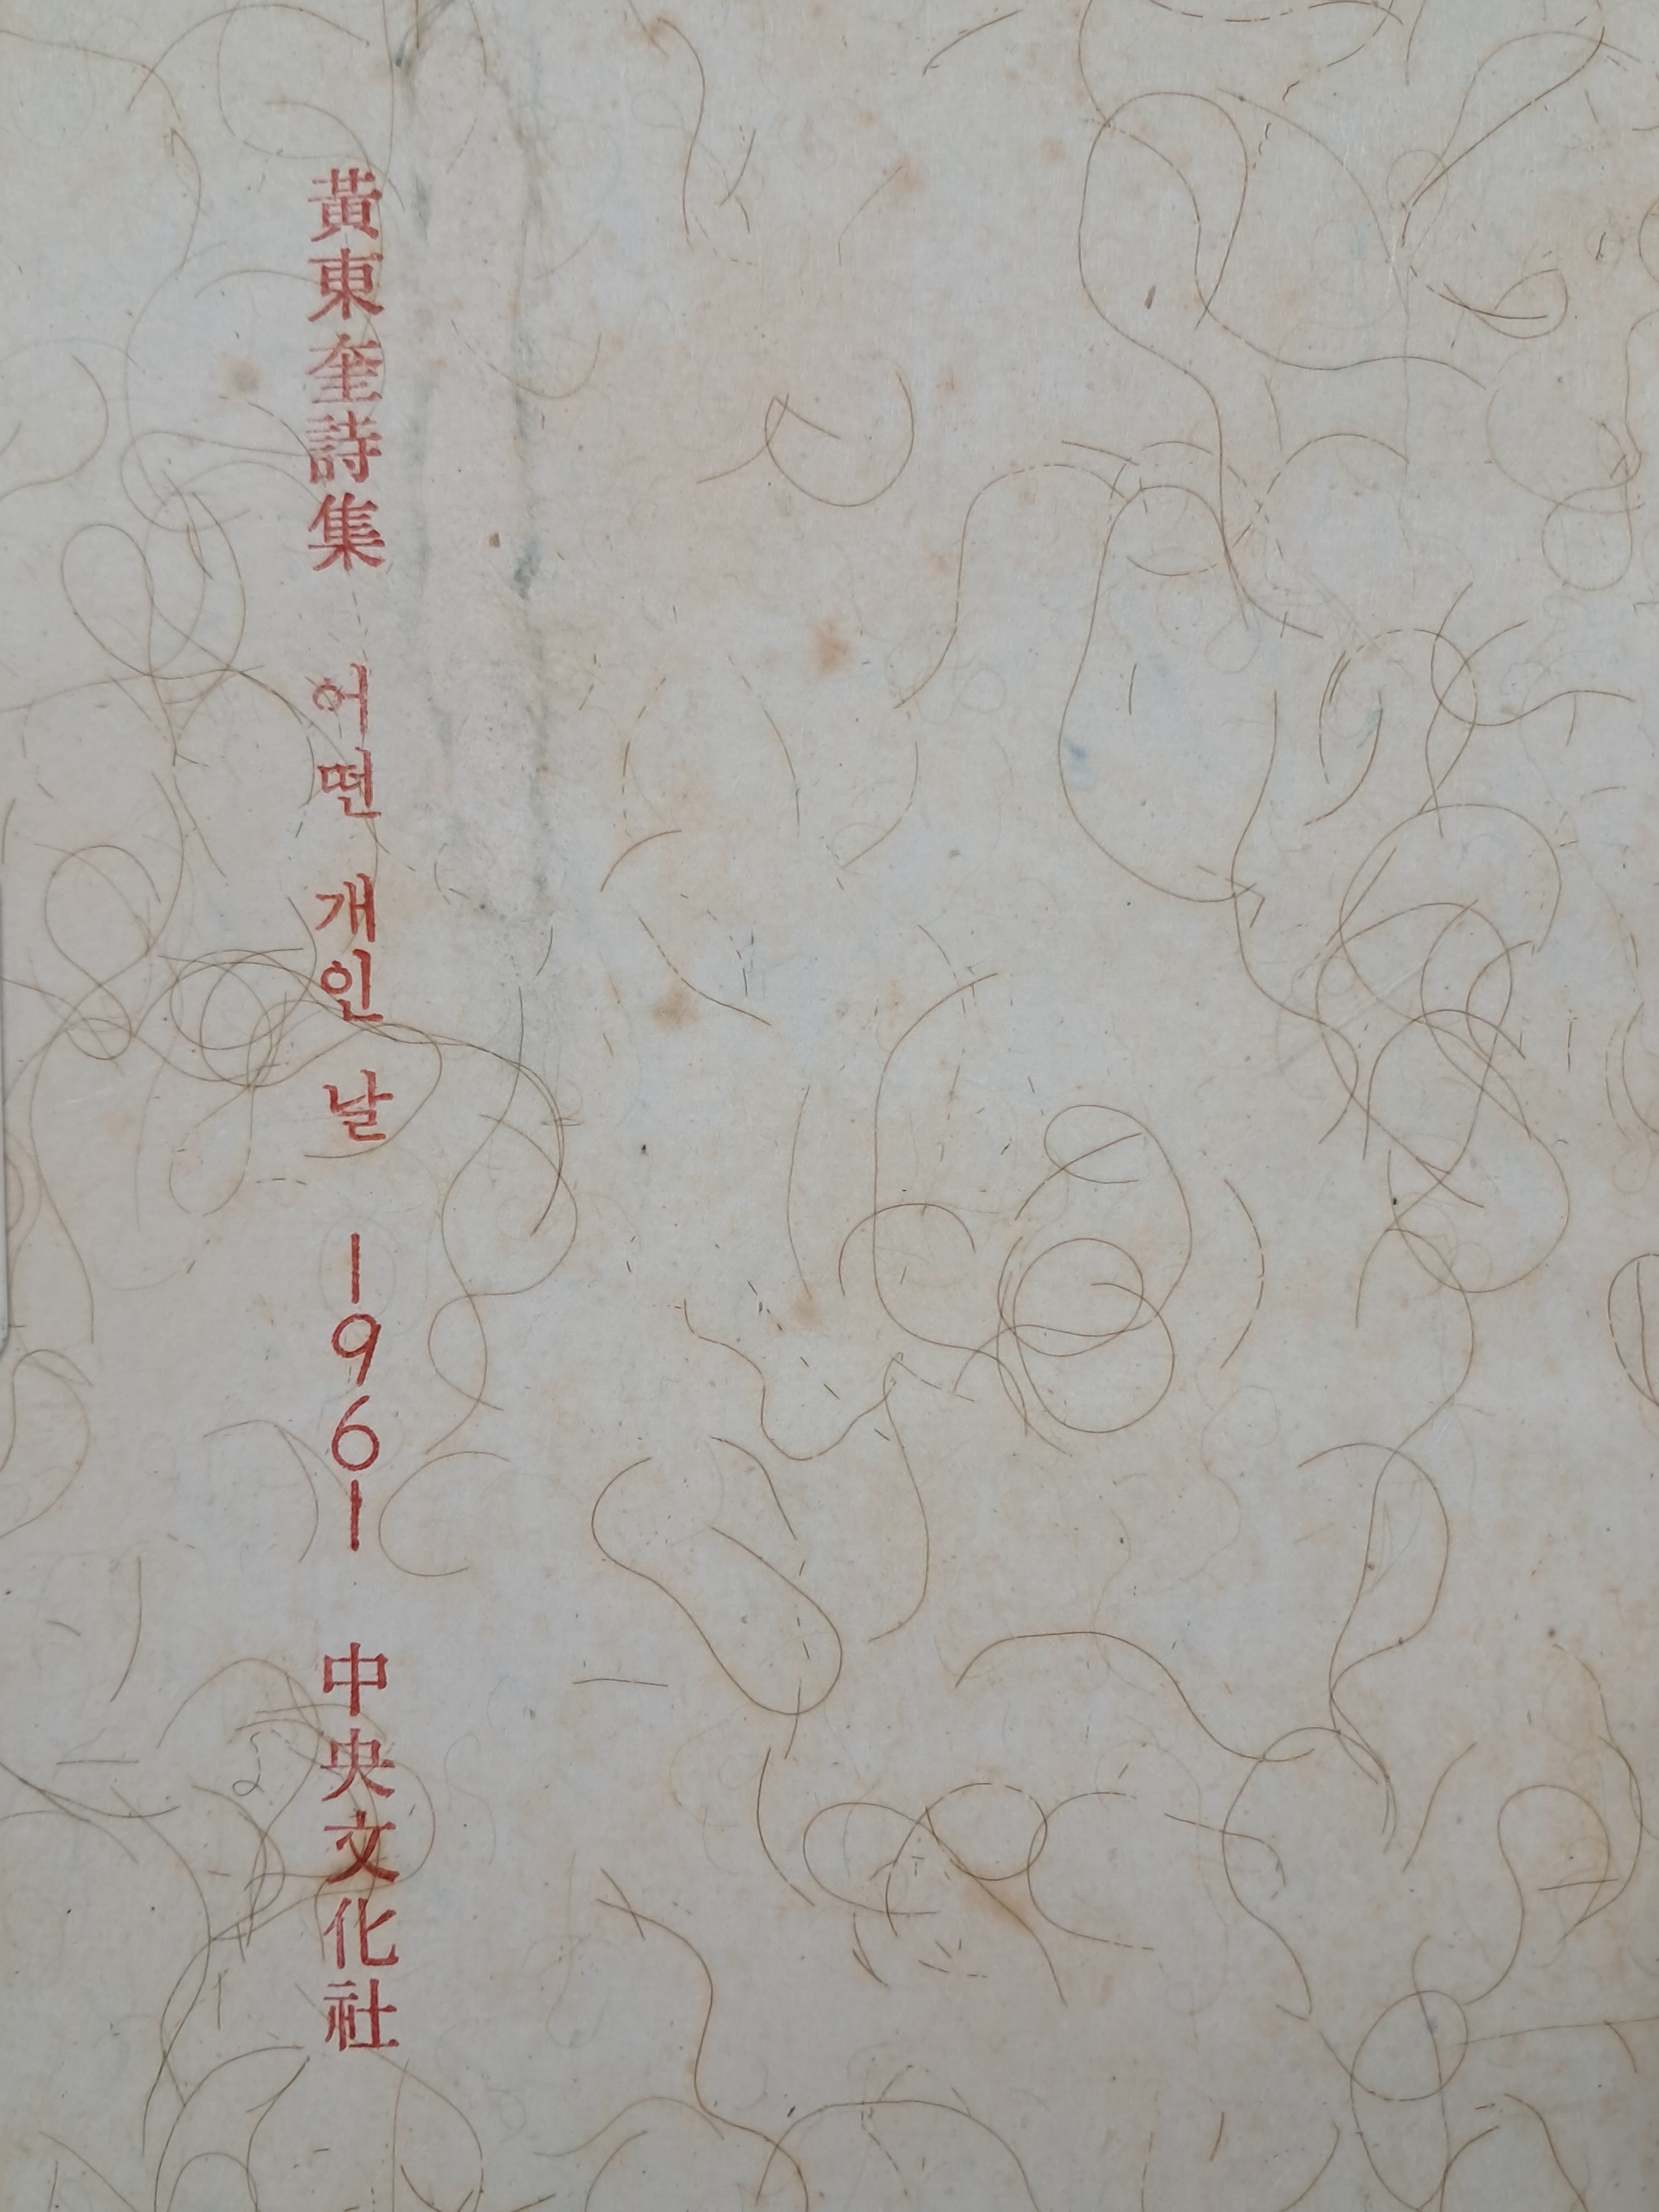 黃東奎詩集 어떤 개인 날 1961 中央文化社